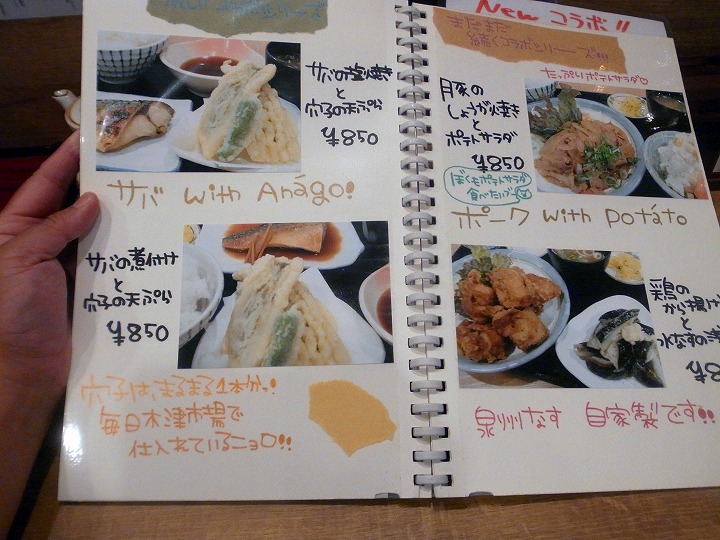 サバの塩焼き
と
穴子の天ぷら
¥850
サバ with Anago!
サバの煮付け
と
穴子の天ぷら
¥850
穴子は、まるまる1本かっ!
毎日木津市場で
仕入れているニョロ!!
New コラボ!!
まだまだ
続くコラボシリーズ!!!
たっぷりポテトサラダ♡
豚の
しょうが焼き
と
ポテトサラダ
¥850
ぼくもポテトサラダ
食べたいブー
ポーク with potato
鶏の
から揚げ
と
水なすの
¥8
泉州なす 自家製です!!